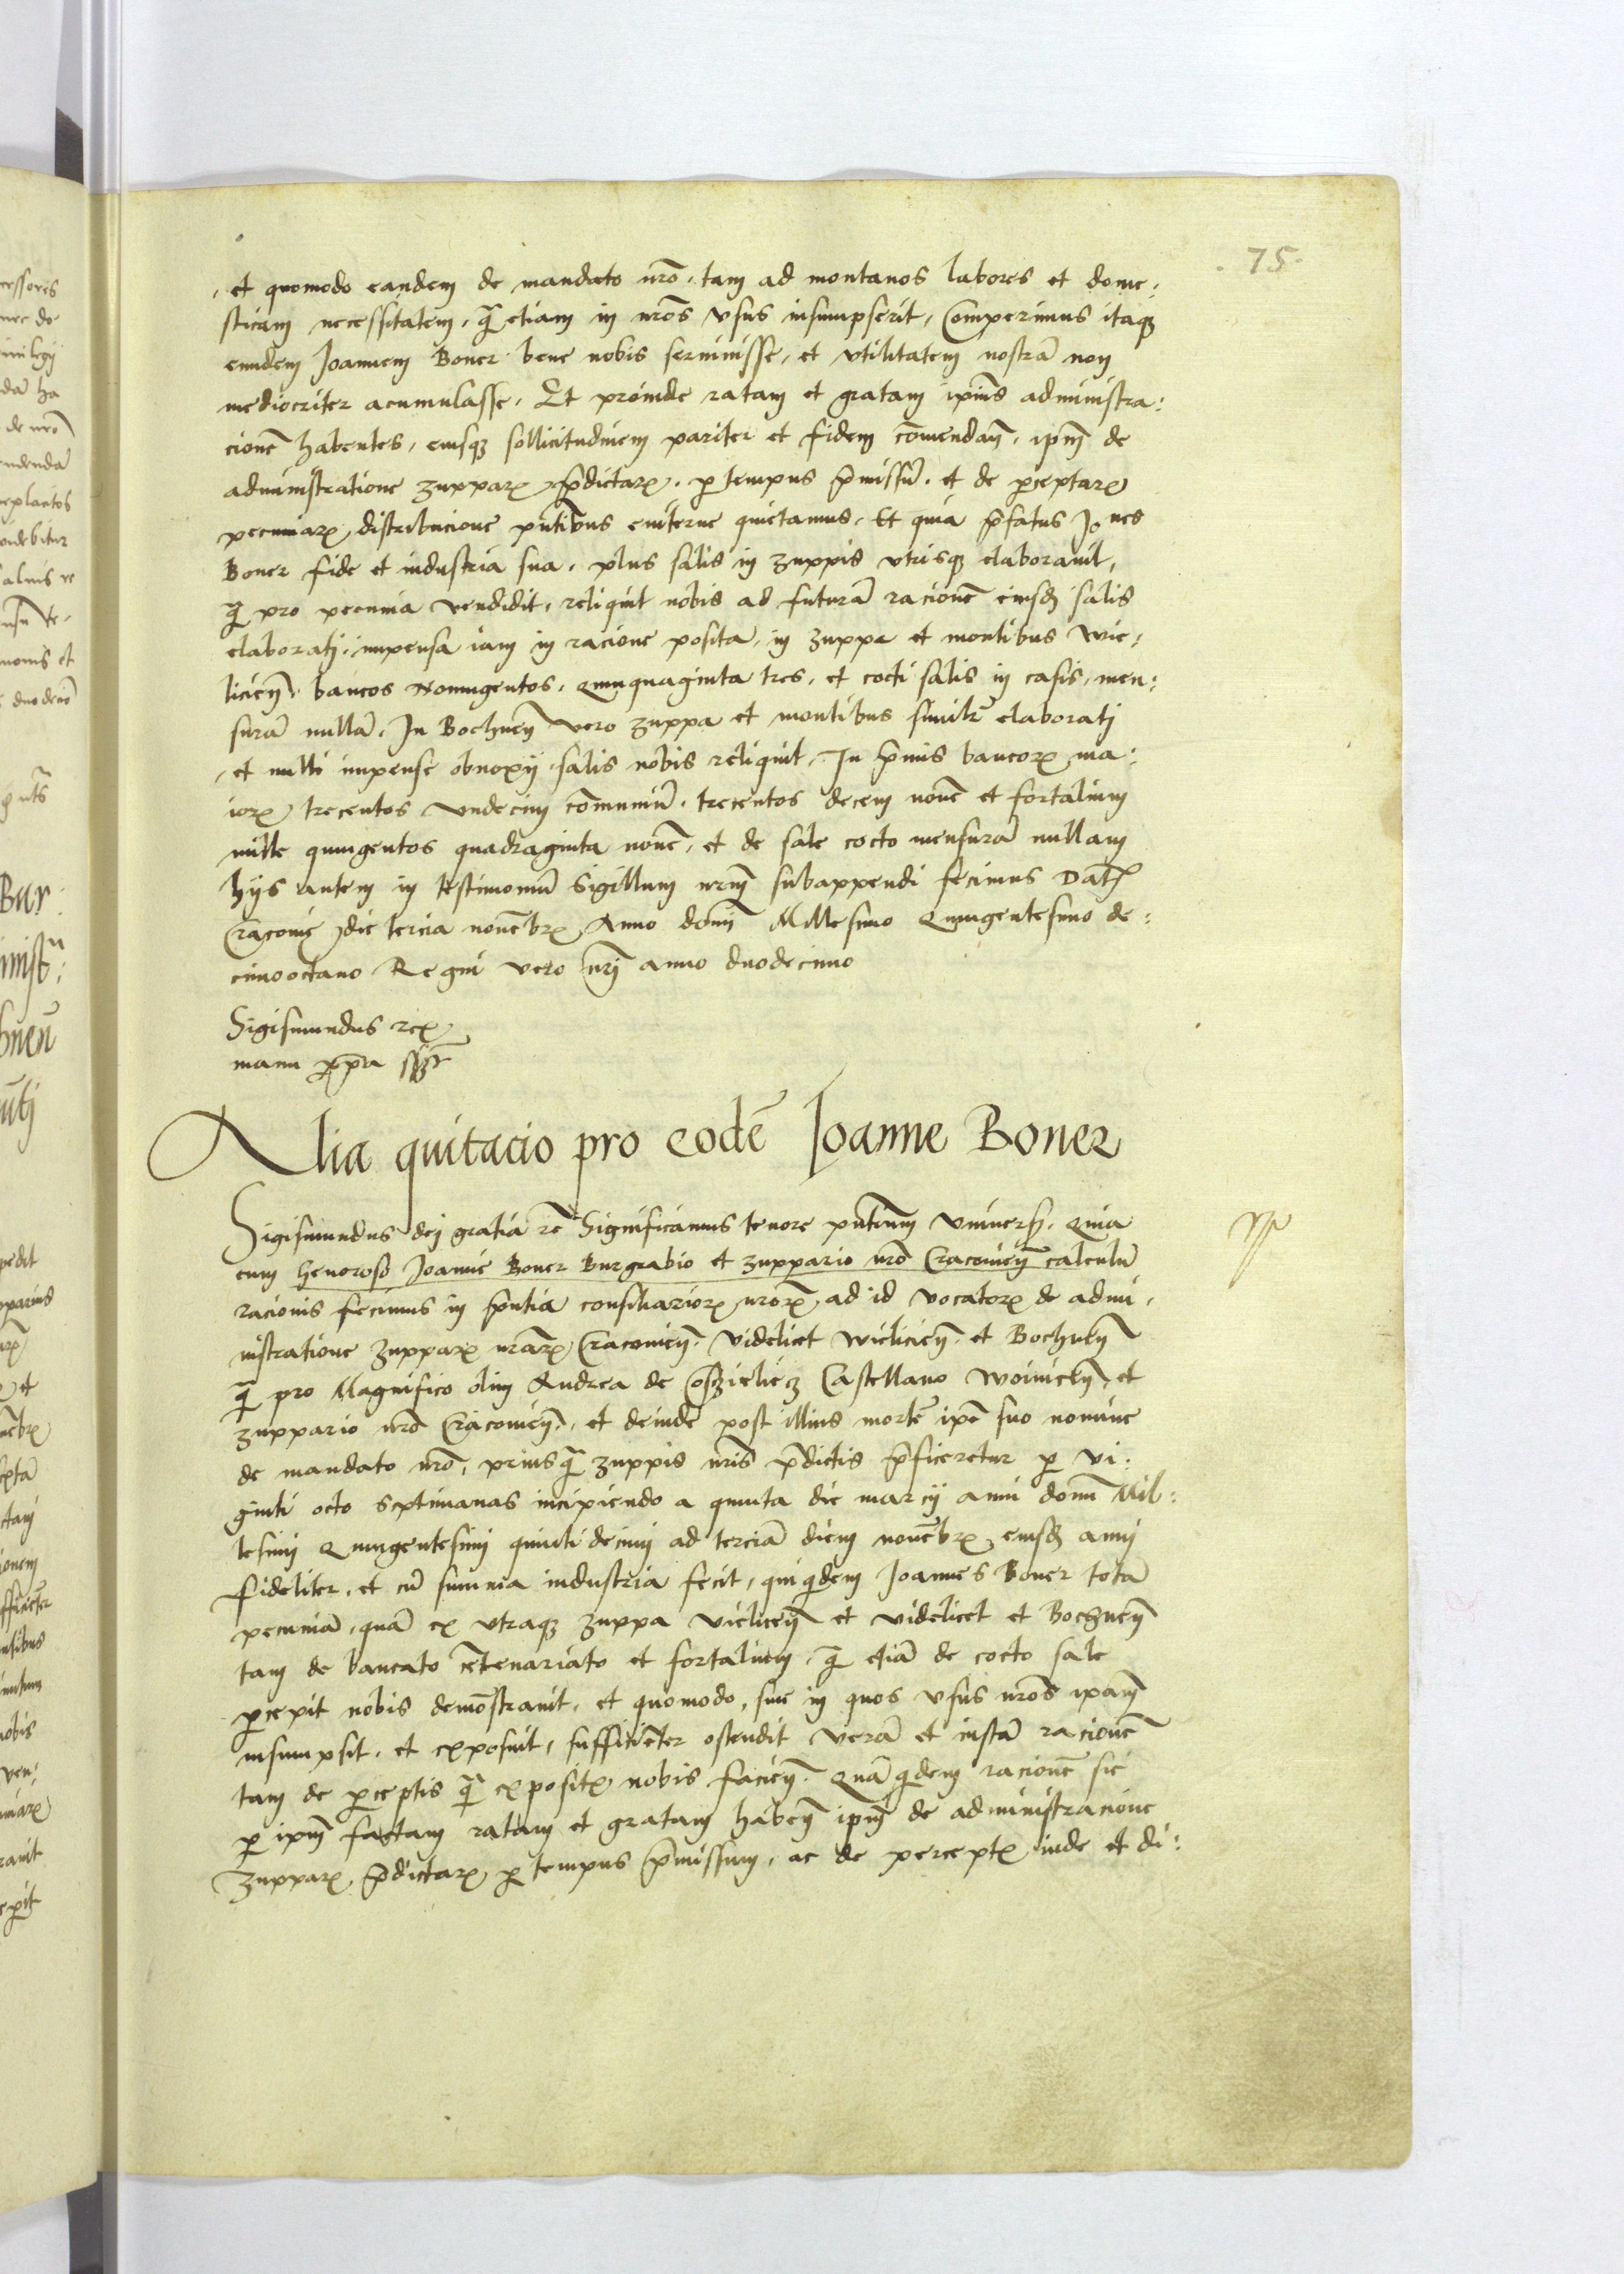 75
et quomodo eandem de mandato nrō tam ad montanos labores et dome:
sticam necessitatem, q̄ etiam in nrōs vsus insumpserit, Comperimus itaqꝫ
eundem Joannem Boner bene nobis seruiuisse, et vtilitatem nostrā non
mediocriter acumulasse. Et proinde ratam et gratam ipius administra:
cionē habentes, eiusqꝫ sollicitudinem pariter et fidem cōmendan̄, ipm̄ de
administratione zupparꝝ p̄dictarꝝ, ꝑ tempus p̄missū, et de ꝑceptarꝝ
pecuniarꝝ distribucione pn̄tibus euiterne quietamus, Et quia p̄fatus Joēs
Boner fide et industria sua, plus salis in zuppis vtrisqꝫ elaborauit,
q̄ pro pecunia vendidit, reliquit nobis ad futurā racionē eiusdē salis
elaborati, impensa iam in racione posita, in zuppa et montibus wie,
licien̄, bancos Noningentos, Quinquaginta tres, et cocti salis in casis, men:
surā nullā, In Bochnen̄ vero zuppa et montibus similr̄ elaborati
et nulli impense obnoxij salis nobis reliquit, In p̄mis bancorꝝ ma:
iorꝝ trecentos vndecim cōmuniū, trecentos decem nouē et fortalium
mille quingentos quadraginta nouē, et de sale cocto mensurā nullam
hijs autem in testimoniū Sigillum nrm̄ subappendi fecimus Datꝫ
Cracouie die tercia nouēbrꝭ Anno domī Millesimo Quingentesimo de:
cimooctauo Regni vero nrī anno duodecimo
Sigismundus rex
manu ꝓpa sst
Alia quitacio pro eodē Joanne Boner
Sigismundus dei gratia rē Significamus tenore pn̄tium Vniuersꝭ. Quia
cum Generoso Joanne Boner Burgrabio et zuppario nrō Cracouien̄ calculū
racionis fecimus in p̄ntia consiliariorꝝ nrorꝝ ad id vocatorꝝ de admi,
nistratione zupparꝝ nrarꝝ Cracouien̄, videlicet wielicien̄ et Bochnen̄
q̄ pro Magnifico olim Andrea de Cosczielecz Castellano woinicien̄ et
zuppario nrō Cracouien̄, et deinde post illius mortē ipē suo nomine
de mandato nrō, priusq̄ zuppis nrīs p̄dictis p̄ficeretur ꝑ vi:
ginti octo septimanas incipiendo a quinta die marcij anni domī Mil:
lesimi Quingentesimi quinti decimi ad terciā diem nouēbrꝭ eiusdē anni
fideliter, et cū summa industria fecit, qui qdem Joannes Boner totā
pecuniā, quā ex vtraqꝫ zuppa vielicien̄ et videlicet et Bochnen̄
tam de bancato cētenariato et fortalium, q̄ etiā de cocto sale
ꝑcepit nobis demōstrauit, et quomodo, siue in quos vsus nrōs ipam̄
insumpsit, et exposuit, sufficiēter ostendit verā et iustā racionē
tam de ꝑceptis q̄ expositꝭ nobis facien̄. Quā qdem racionē sic
ꝑ ipm̄ factam ratam et gratam haben̄ ipm̄ de administracione
zupparꝝ p̄dictarꝝ ꝑ tempus p̄missum, ac de perceptꝭ inde et di: